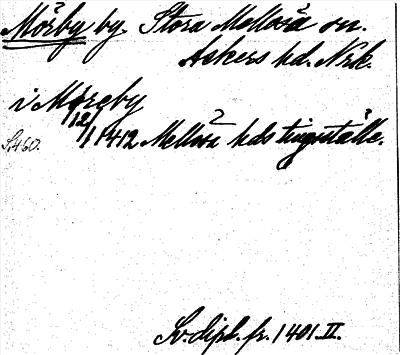 Mörby by. Stora Mellösa sn.
Askers hd. Nrk.
i Möreby
12/1 1412 Mellösa hds tingställe.
S. 460.
Sv. dipl. fr. 1401. II.